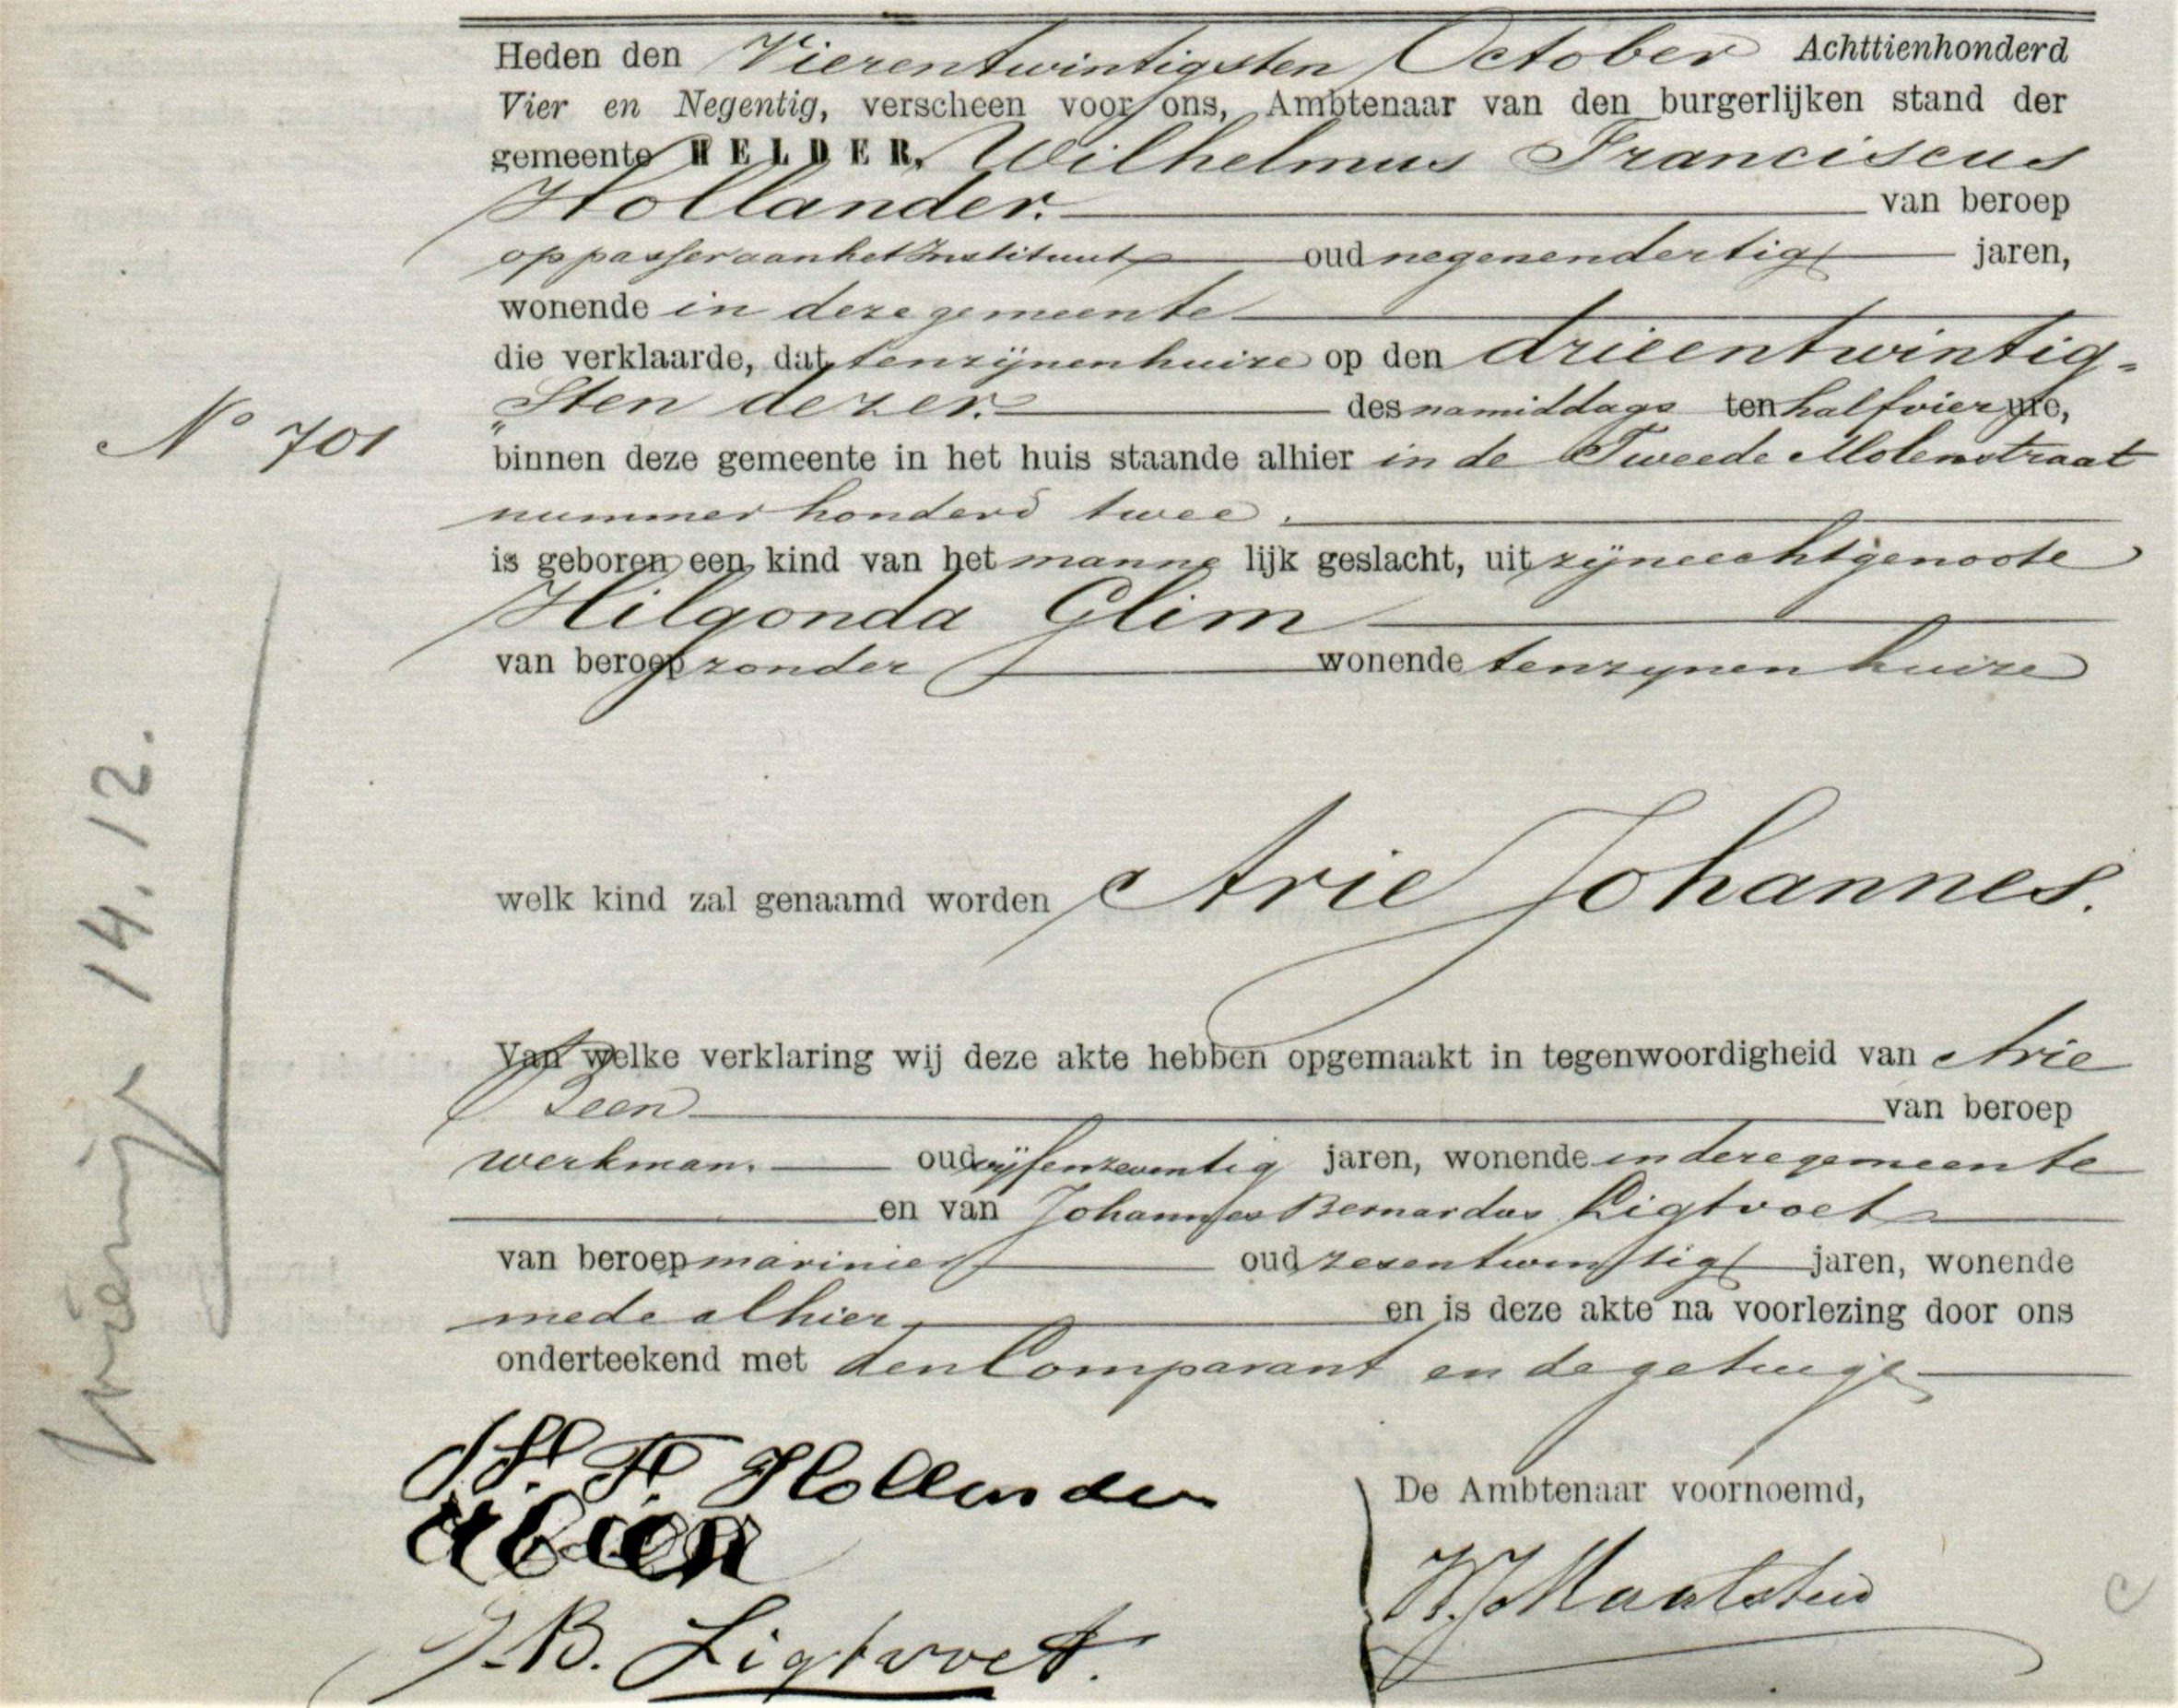 Heden den Vierentwintigsten October Achttienhonderd
Vier en Negentig, verscheen voor ons, Ambtenaar van den burgerlijken stand der
gemeente HELDER, Wilhelmus Franciscus
Hollander. van beroep
oppasser aan het Instituut oud negenendertig jaren,
wonende in deze gemeente
die verklaarde, dat ten zijnen huize op den drieentwintig-
sten dezer. des namiddags ten half vier ure,
N° 701
binnen deze gemeente in het huis staande alhier in de Tweede Molenstraat
nummer honderd twee.
is geboren een kind van het manne lijk geslacht, uit zijne echtgenoote
Hilgonda Glim
van beroep zonder wonende ten zijnen huize
welk kind zal genaamd worden Arie Johannes.
Van welke verklaring wij deze akte hebben opgemaakt in tegenwoordigheid van Arie
Been van beroep
werkman. oud vijfenzeventig jaren, wonende in deze gemeente
en van Johannes Bernardus Ligtvoet
van beroep marinier oud zesentwintig jaren, wonende
mede alhier, en is deze akte na voorlezing door ons
onderteekend met den Comparant en de getuige
14.12.
W. F. Hollander
A Been
J. B. Ligtvoet.
De Ambtenaar voornoemd,